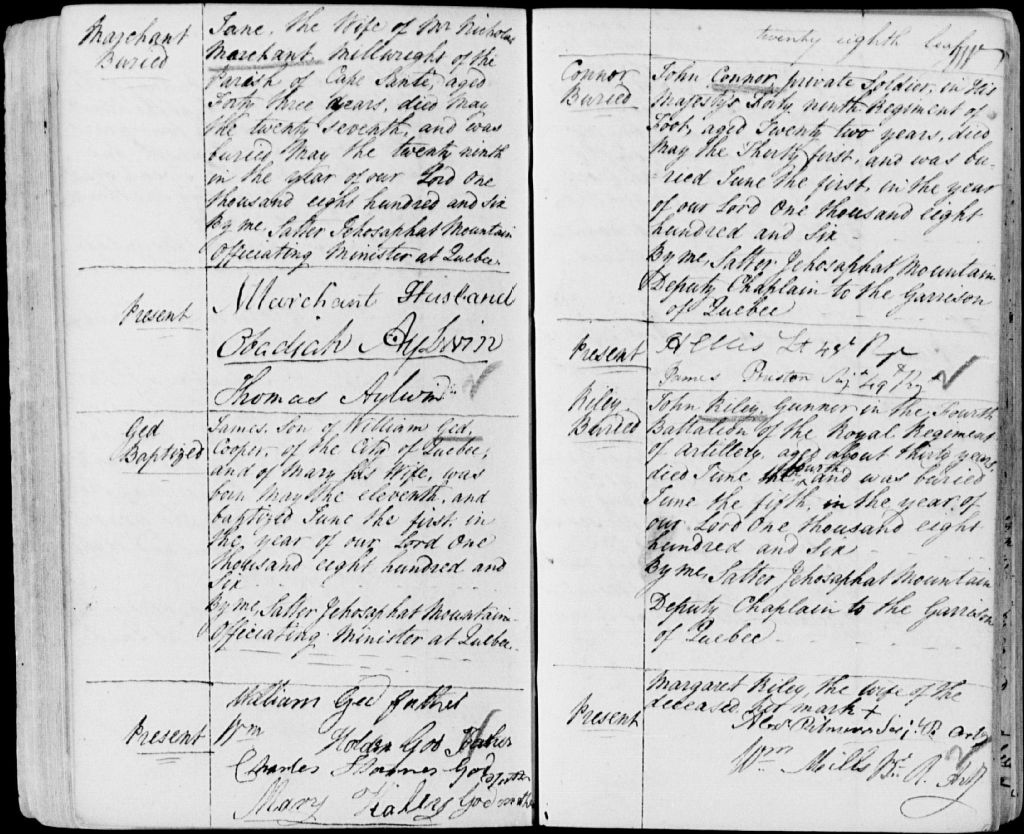 Marchant
Buried
Jane, the Wife of Mr Nicholas
Marchant, Millwright of the
Parish of Cape Santé, aged
Forty three years, died May
the twenty seventh, and was
buried May the twenty ninth
in the year of our Lord One
thousand eight hundred and Six
By me, Salter Jehosaphat Mountain
Officiating Minister at Quebec.
Present
Marchant Husband
Obadiah Aylwin
Thomas Aylwin
Ged
Baptized
James, Son of William Ged,
Cooper, of the City of Quebec,
and of Mary his Wife, was
born May the eleventh, and
baptized June the first in
the year of our Lord One
thousand eight hundred and
Six
By me, Salter Jehosaphat Mountain
Officiating Minister at Quebec.
Present
William Ged father
Wm Holden God Father
Charles God father
Mary God mother
twenty eighth leaf
Connor
Buried
John Connor, private Soldier, in His
Majesty's Forty ninth Regiment of
Foot, aged Twenty two years, died
May the Thirty first, and was bu-
ried June the first, in the year
of our Lord One thousand eight
hundred and Six
By me, Salter Jehosaphat Mountain
Deputy Chaplain to the Garrison
of Quebec
Present
Lt 49t
James
Riley
Buried
John Riley, Gunner in the Fourth
Battalion of the Royal Regiment
of Artillery, aged about thirty years,
died June the fourth, and was buried
June the fifth, in the year of
our Lord One thousand eight
hundred and Six
By me, Salter Jehosaphat Mountain
Deputy Chaplain to the Garrison
of Quebec
Present
Margaret Riley, the wife of the
deceased her mark +
Alexr R Arty
Wm Mills R. Arty